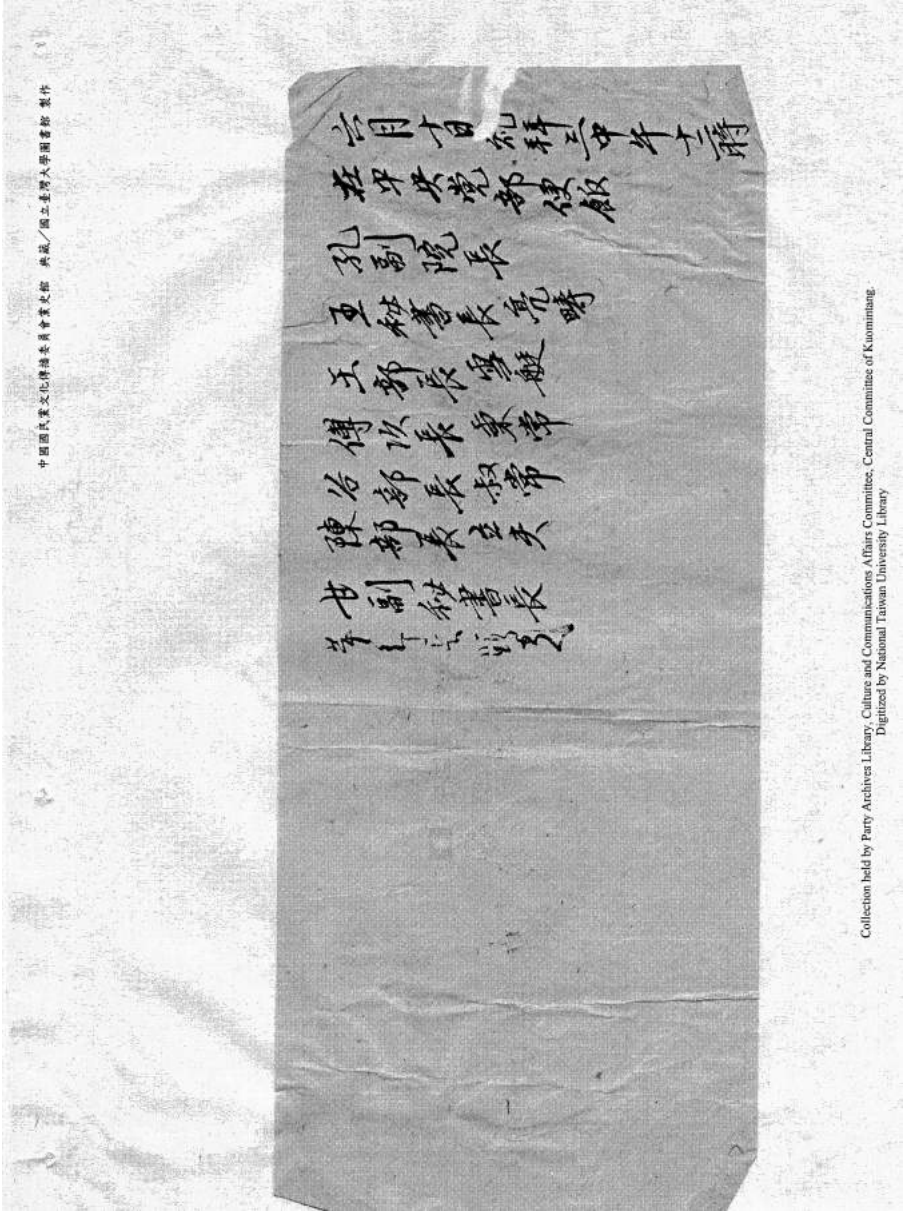 中國國民黨文化傳播委員會黨史館 典藏/國立臺灣大學圖書館 製作
六月十日礼拜三中午十二時
在中央党部便飯
孔副院長
王秘書長亮疇
王部長雪艇
傅次長秉常
谷部長叔常
陳部長立夫
甘副秘書長
Collection held by Party Archives Library, Culture and Communications Affairs Committee, Central Committee of Kuomintang.
Digitized by National Taiwan University Library